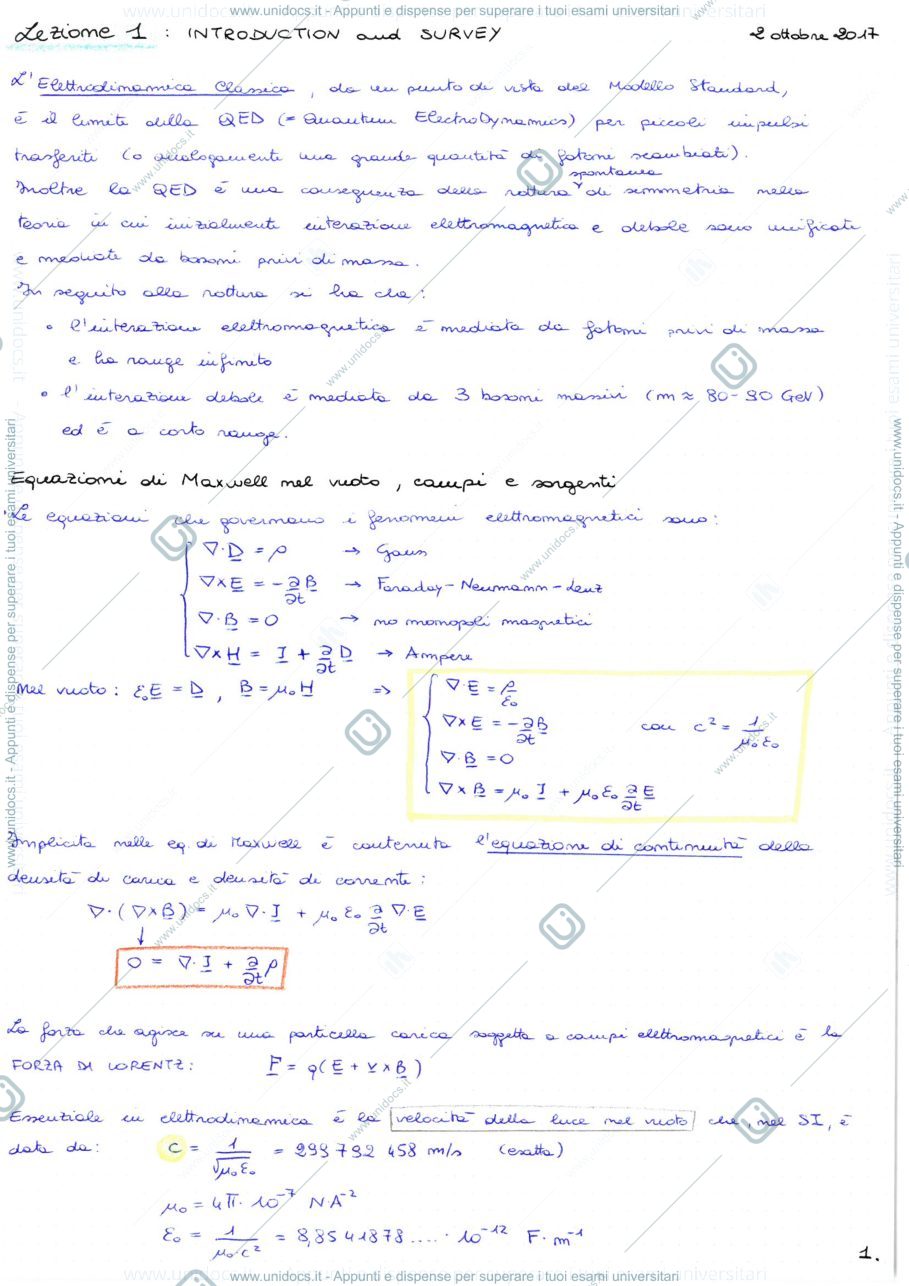 www.unidocs.it - Appunti e dispense per superare i tuoi esami universitari
Lezione 1 : INTRODUCTION and SURVEY 2 ottobre 2017
L'Elettrodinamica Classica, da un punto di vista del Modello Standard,
è il limite della QED (= Quantum ElectroDynamics) per piccoli impulsi
trasferiti (o analogamente una grande quantità di fotoni scambiati).
Inoltre la QED è una conseguenza della rottura spontanea di simmetria nella
teoria in cui inizialmente interazione elettromagnetica e debole sono unificate
e mediate da bosoni privi di massa.
In seguito alla rottura si ha che:
• l'interazione elettromagnetica è mediata da fotoni privi di massa
e ha range infinito
• l'interazione debole è mediata da 3 bosoni massivi (m ≈ 80-90 GeV)
ed è a corto range.
Equazioni di Maxwell nel vuoto, campi e sorgenti
Le equazioni che governano i fenomeni elettromagnetici sono:
∇·D = ρ → Gauss
∇×E = -∂B/∂t → Faraday-Neumann-Lenz
∇·B = 0 → no monopoli magnetici
∇×H = J + ∂D/∂t → Ampere
Nel vuoto: ε₀E = D, B = μ₀H ⇒
∇·E = ρ/ε₀
∇×E = -∂B/∂t con c² = 1/μ₀ε₀
∇·B = 0
∇×B = μ₀J + μ₀ε₀ ∂E/∂t
Implicita nelle eq. di Maxwell è contenuta l'equazione di continuità della
densità di carica e densità di corrente:
∇·(∇×B) = μ₀∇·J + μ₀ε₀ ∂/∂t ∇·E
↓
0 = ∇·J + ∂/∂t ρ
La forza che agisce su una particella carica soggetta a campi elettromagnetici è la
FORZA DI LORENTZ: F = q(E + v×B)
Essenziale in elettrodinamica è la velocità della luce nel vuoto che, nel SI, è
data da: c = 1/√μ₀ε₀ = 299 792 458 m/s (esatta)
μ₀ = 4π·10⁻⁷ N·A⁻²
ε₀ = 1/μ₀·c² = 8,8541878....·10⁻¹² F·m⁻¹
1.
www.unidocs.it - Appunti e dispense per superare i tuoi esami universitari